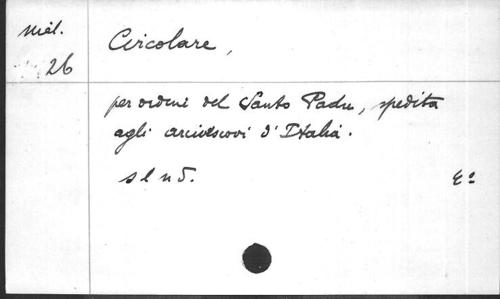 Miel.
26
Circolare,
per ordini del Santo Padre, spedita
agli arcivescovi d'Italia.
s l n d.
4º